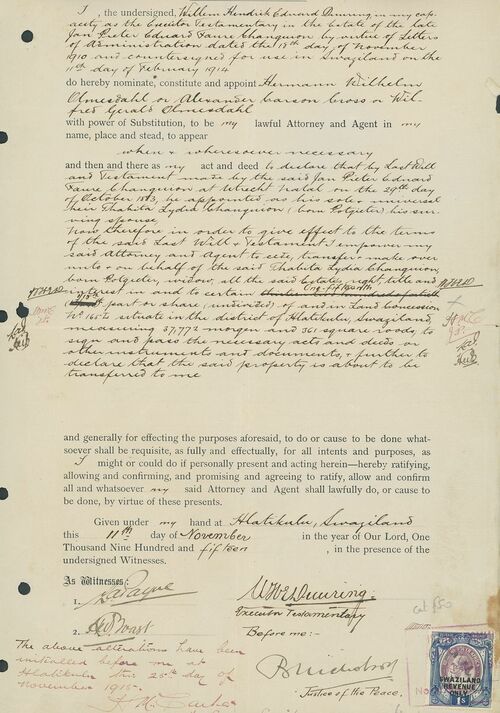 I, the undersigned, Willem Hendrik Eduard Deuring, in my cap-
acity as the Executor Testamentary in the Estate of the late
Jan Pieter Eduard Faure Changuion by virtue of Letters
of Administration dated the 18th day of November
1910 and countersigned for use in Swaziland on the
11th day of February 1914
do hereby nominate, constitute and appoint Hermann Wilhelm
Olmesdahl or Alexander Carson Cross or Wil-
fred Gerald Olmesdahl
with power of Substitution, to be my lawful Attorney and Agent in my
name, place and stead, to appear
when & wheresoever necessary
and then and there as my act and deed to declare that by Last Will
and Testament made by the said Jan Pieter Eduard
Faure Changuion at Utrecht Natal on the 29th day
of October 1883, he appointed as his sole & universal
heir Thalita Lydia Changuion (born Potgieter) his sur-
viving spouse
Now therefore in order to give effect to the terms
of the said Last Will & Testament I empower my
said Attorney and Agent to cede, transfer & make over
unto & on behalf of the said Thalita Lydia Changuion,
born Potgieter, widow, all the said Estate's right, title and
interest in and to certain One-fifteenth
(1/15th) part or share (undivided) of and in Land Concession
No 165a situate in the district of Hlatikulu, Swaziland,
measuring 37,772 morgen and 361 square roods, to
sign and pass the necessary acts and deeds or
other instruments and documents, & further to
declare that the said property is about to be
transferred to me
and generally for effecting the purposes aforesaid, to do or cause to be done what-
soever shall be requisite, as fully and effectually, for all intents and purposes, as
I might or could do if personally present and acting herein—hereby ratifying,
allowing and confirming, and promising and agreeing to ratify, allow and confirm
all and whatsoever my said Attorney and Agent shall lawfully do, or cause to
be done, by virtue of these presents.
Given under my hand at Hlatikulu, Swaziland
this 11th day of November in the year of Our Lord, One
Thousand Nine Hundred and fifteen, in the presence of the
undersigned Witnesses.
As Witnesses:
1. Payne
WHE Deuring.
Executor Testamentary
cat £50
2. Boast
Before me:-
The above alterations have been
initialled before me at
Hlatikulu this 25th day of
November 1915.
Justice of the Peace.
SWAZILAND
REVENUE
ONLY
1s